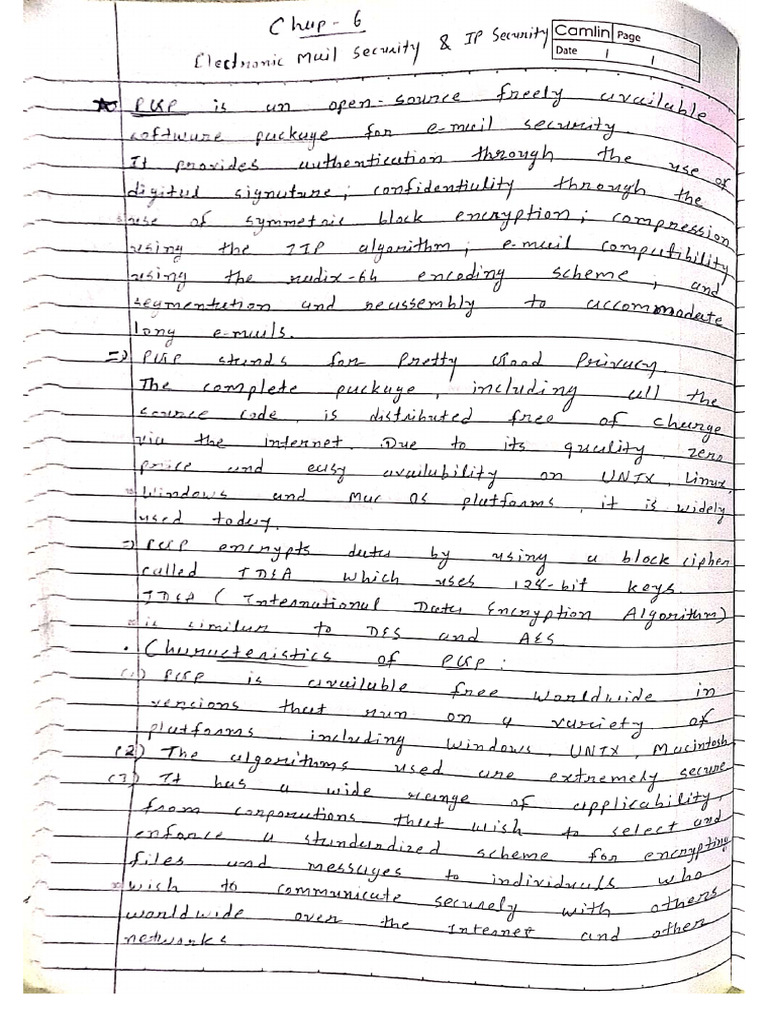 Chap - 6
Electronic Mail Security & IP Security
Camlin Page
Date / /
★ PGP is an open-source freely available
software package for e-mail security.
It provides authentication through the use of
digital signature; confidentiality through the
use of symmetric block encryption; compression
using the ZIP algorithm; e-mail compatibility
using the radix-64 encoding scheme; and
segmentation and reassembly to accommodate
long e-mails.
=> PGP stands for Pretty Good Privacy.
The complete package, including all the
source code, is distributed free of charge
via the Internet. Due to its quality, zero
price and easy availability on UNIX, Linux,
Windows and Mac OS platforms, it is widely
used today.
=> PGP encrypts data by using a block cipher
called IDEA which uses 128-bit keys.
IDEA (International Data Encryption Algorithm)
is similar to DES and AES
• Characteristics of PGP:
(1) PGP is available free worldwide in
versions that run on a variety of
platforms, including Windows, UNIX, Macintosh
(2) The algorithms used are extremely secure
(3) It has a wide range of applicability,
from corporations that wish to select and
enforce a standardized scheme for encrypting
files and messages to individuals who
wish to communicate securely with others
worldwide over the Internet and other
networks.